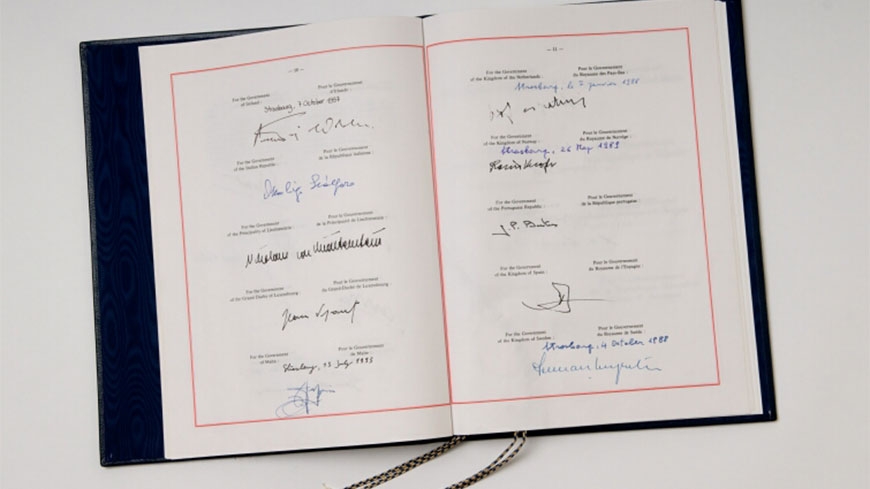 — 10 —
For the Government Pour le Gouvernement
of Ireland : d'Irlande :
Strasbourg, 7 October 1997
For the Government Pour le Gouvernement
of the Italian Republic : de la République italienne :
For the Government Pour le Gouvernement
of the Principality of Liechtenstein : de la Principauté de Liechtenstein :
Nikolaus von Liechtenstein
For the Government Pour le Gouvernement
of the Grand Duchy of Luxembourg : du Grand-Duché de Luxembourg :
Jean Spautz
For the Government Pour le Gouvernement
of Malta : de Malte :
Strasbourg, 13 July 1993
— 11 —
For the Government Pour le Gouvernement
of the Kingdom of the Netherlands : du Royaume des Pays-Bas :
Strasbourg, le 7 janvier 1988
For the Government Pour le Gouvernement
of the Kingdom of Norway : du Royaume de Norvège :
Strasbourg, 26 May 1989
For the Government Pour le Gouvernement
of the Portuguese Republic : de la République portugaise :
J. P.
For the Government Pour le Gouvernement
of the Kingdom of Spain : du Royaume de l'Espagne :
For the Government Pour le Gouvernement
of the Kingdom of Sweden : du Royaume de Suède :
Strasbourg, 4 October 1988